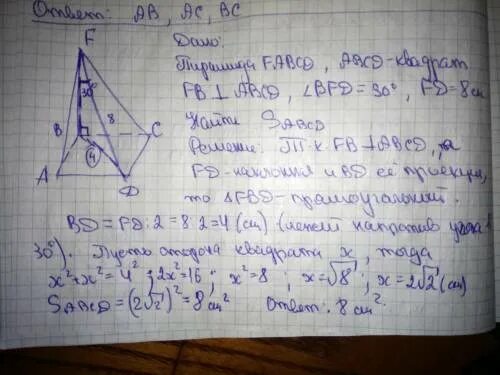 Ответ: AB, AC, BC
F
30°
8
B
C
4
A
D
Дано:
Пирамида FABCD, ABCD-квадрат
FB⊥ABCD, ∠BFD=30°, FD=8см
Найти SABCD
Решение: Т.к FB⊥ABCD, а
FD-наклонная и BD её проекция,
то △FBD-прямоугольный.
BD=FD:2=8:2=4(см) (лежит напротив угла
30°). Пусть сторона квадрата x, тогда
x²+x²=4²; 2x²=16; x²=8; x=√8; x=2√2(см)
SABCD=(2√2)²=8см² Ответ: 8см².